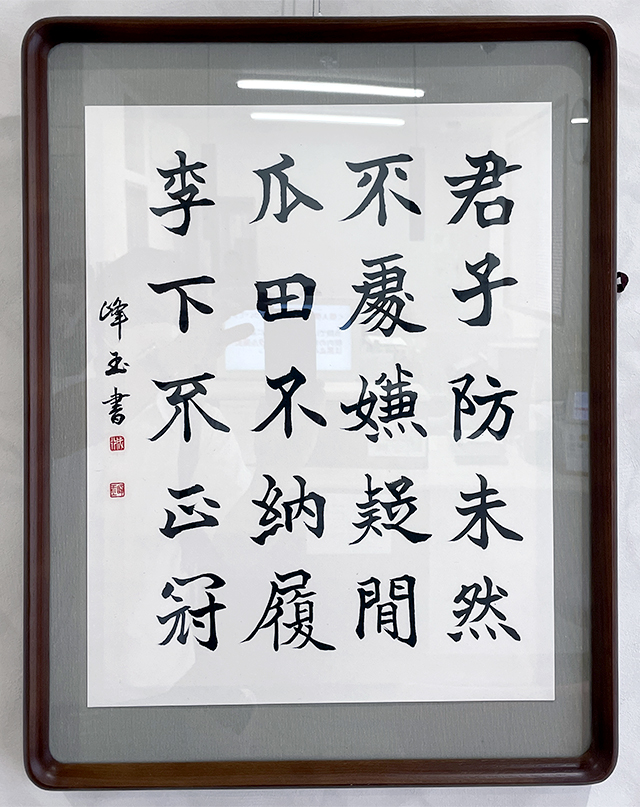 君子防未然
不處嫌疑間
瓜田不納履
李下不正冠
峰玉書